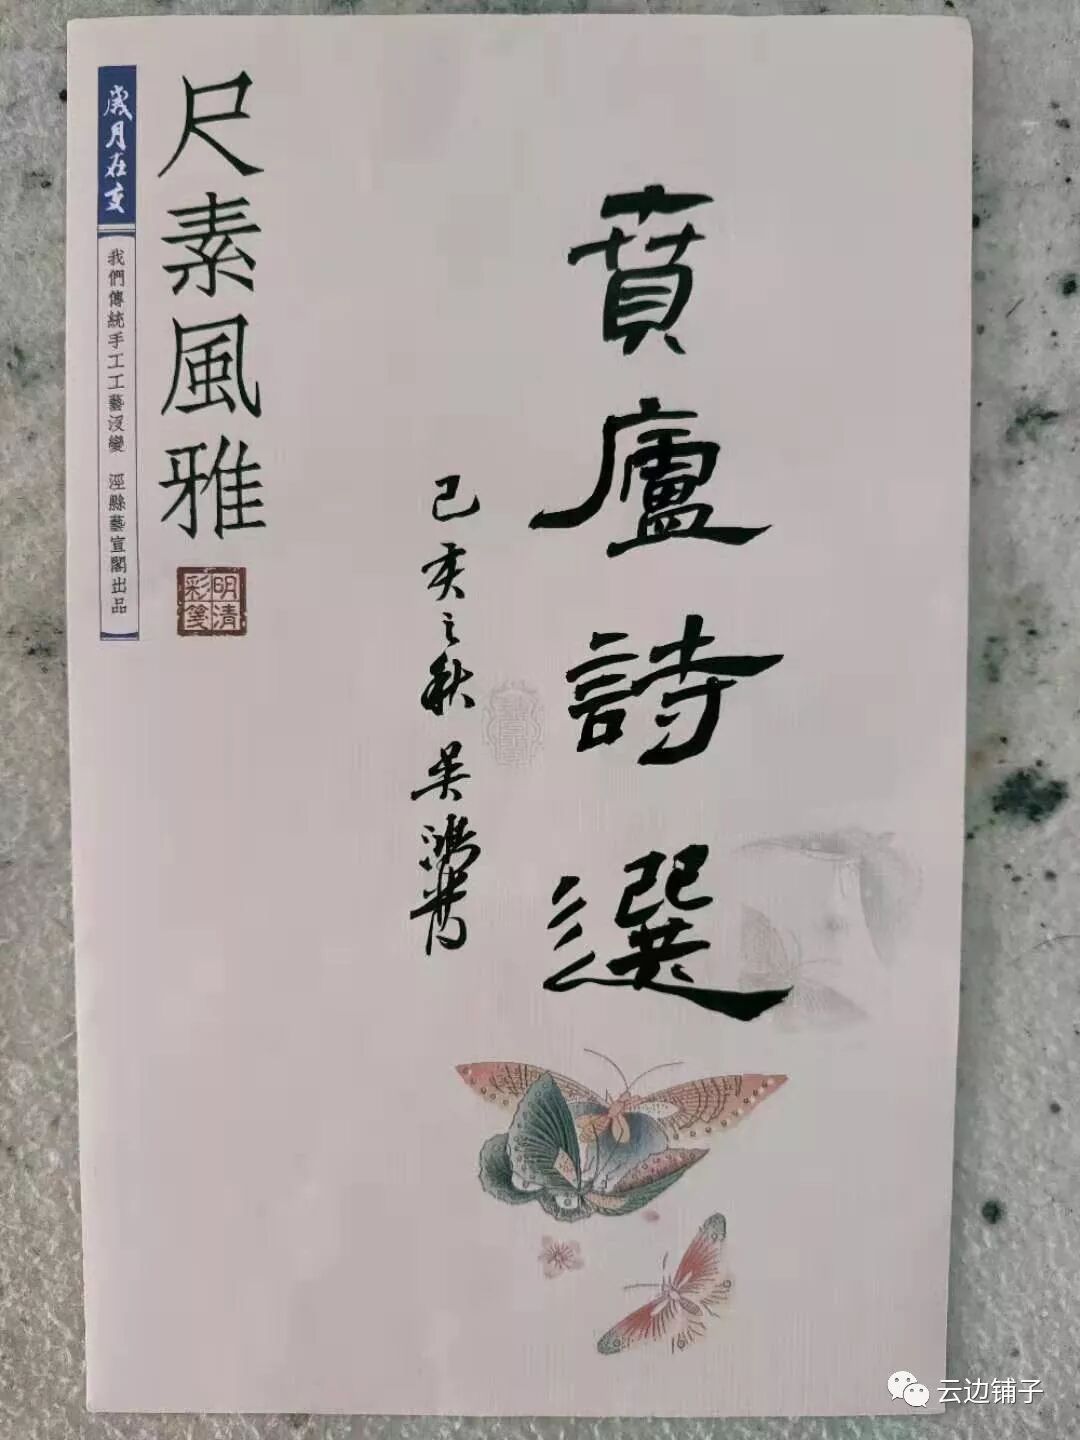 賁廬詩選
己亥之秋 吴鴻
尺素風雅
明清彩箋
歲月在变
我們傳統手工工藝没變 涇縣藝宣閣出品
云边铺子